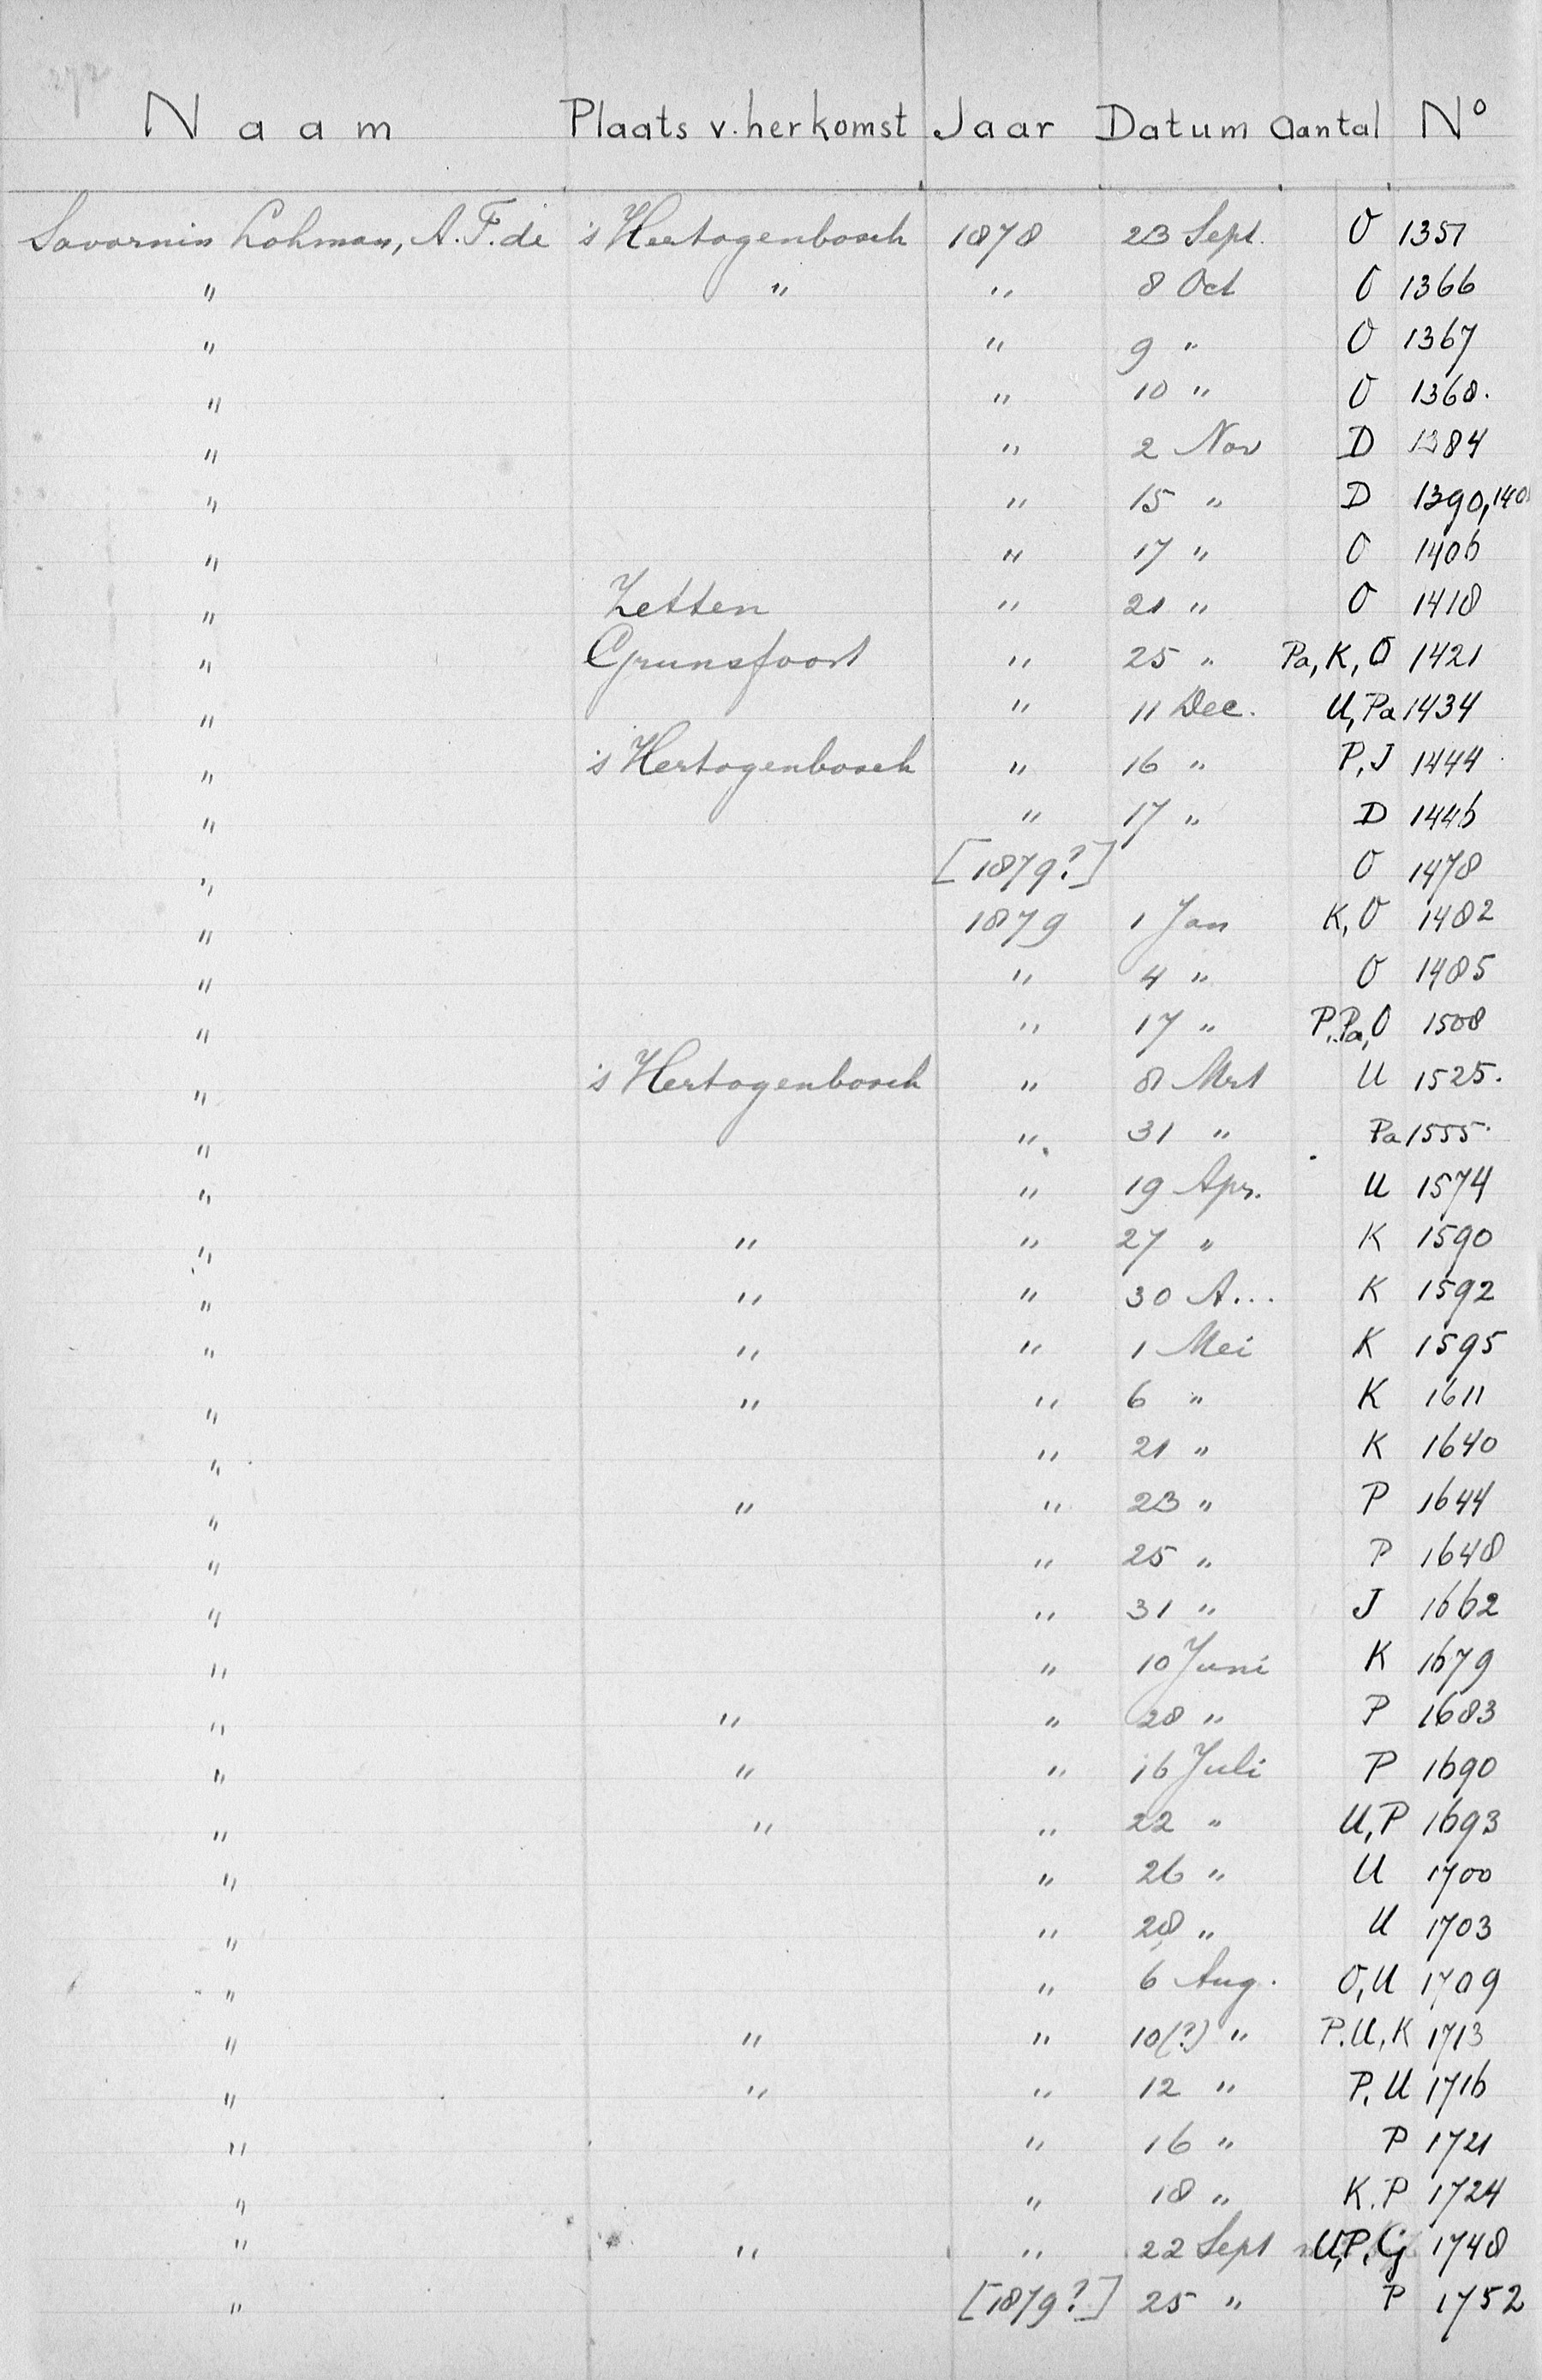 272
Naam Plaats v. herkomst Jaar Datum Aantal Nº
Savornin Lohman, A.F. de 's Hertogenbosch 1878 23 Sept. O 1357
" " " 8 Oct O 1366
" " 9 " O 1367
" " 10 " O 1368.
" " 2 Nov D 1384
" " 15 " D 1390, 140
" " 17 " O 1406
" Zetten " 21 " O 1418
" Grunsfoort " 25 " Pa, K, O 1421
" " 11 Dec. U, Pa 1434
" 's Hertogenbosch " 16 " P, J 1444
" " 17 " D 1446
" [1879?] O 1478
" 1879 1 Jan K, O 1482
" " 4 " O 1485
" " 17 " P, Pa, O 1508
" 's Hertogenbosch " 8 Mrt U 1525.
" " 31 " Pa 1555.
" " 19 Apr. U 1574
" " " 27 " K 1590
" " " 30 A... K 1592
" " " 1 Mei K 1595
" " " 6 " K 1611
" " 21 " K 1640
" " " 23 " P 1644
" " 25 " P 1648
" " 31 " J 1662
" " 10 Juni K 1679
" " " 28 " P 1683
" " " 16 Juli P 1690
" " " 22 " U, P 1693
" " 26 " U 1700
" " 28 " U 1703
" " 6 Aug. O, U 1709
" " " 10(?) " P. U, K 1713
" " " 12 " P, U 1716
" " 16 " P 1721
" " 18 " K. P 1724
" " " 22 Sept U, P, G 1748
" [1879?] 25 " P 1752